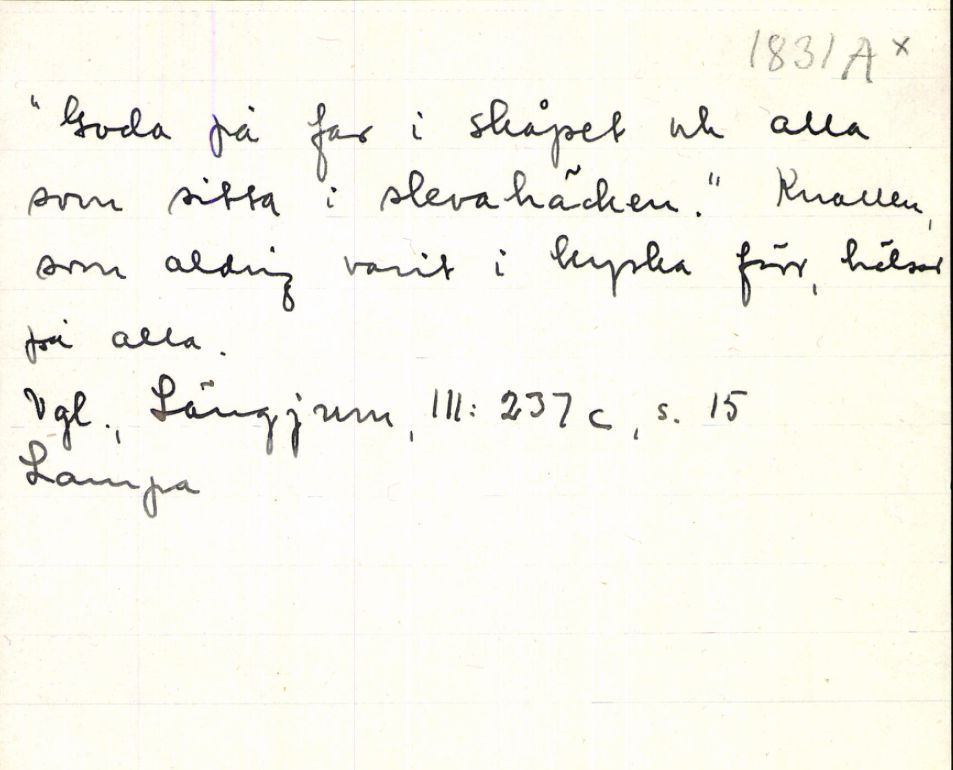 1831A x
"Goda på far i skåpet uh alla
som sitta i slevahäcken." Knallen,
som aldrig varit i kyrka förr, hälsar
på alla.
Vgl., Långjum, III: 237 c, s. 15
Lampa